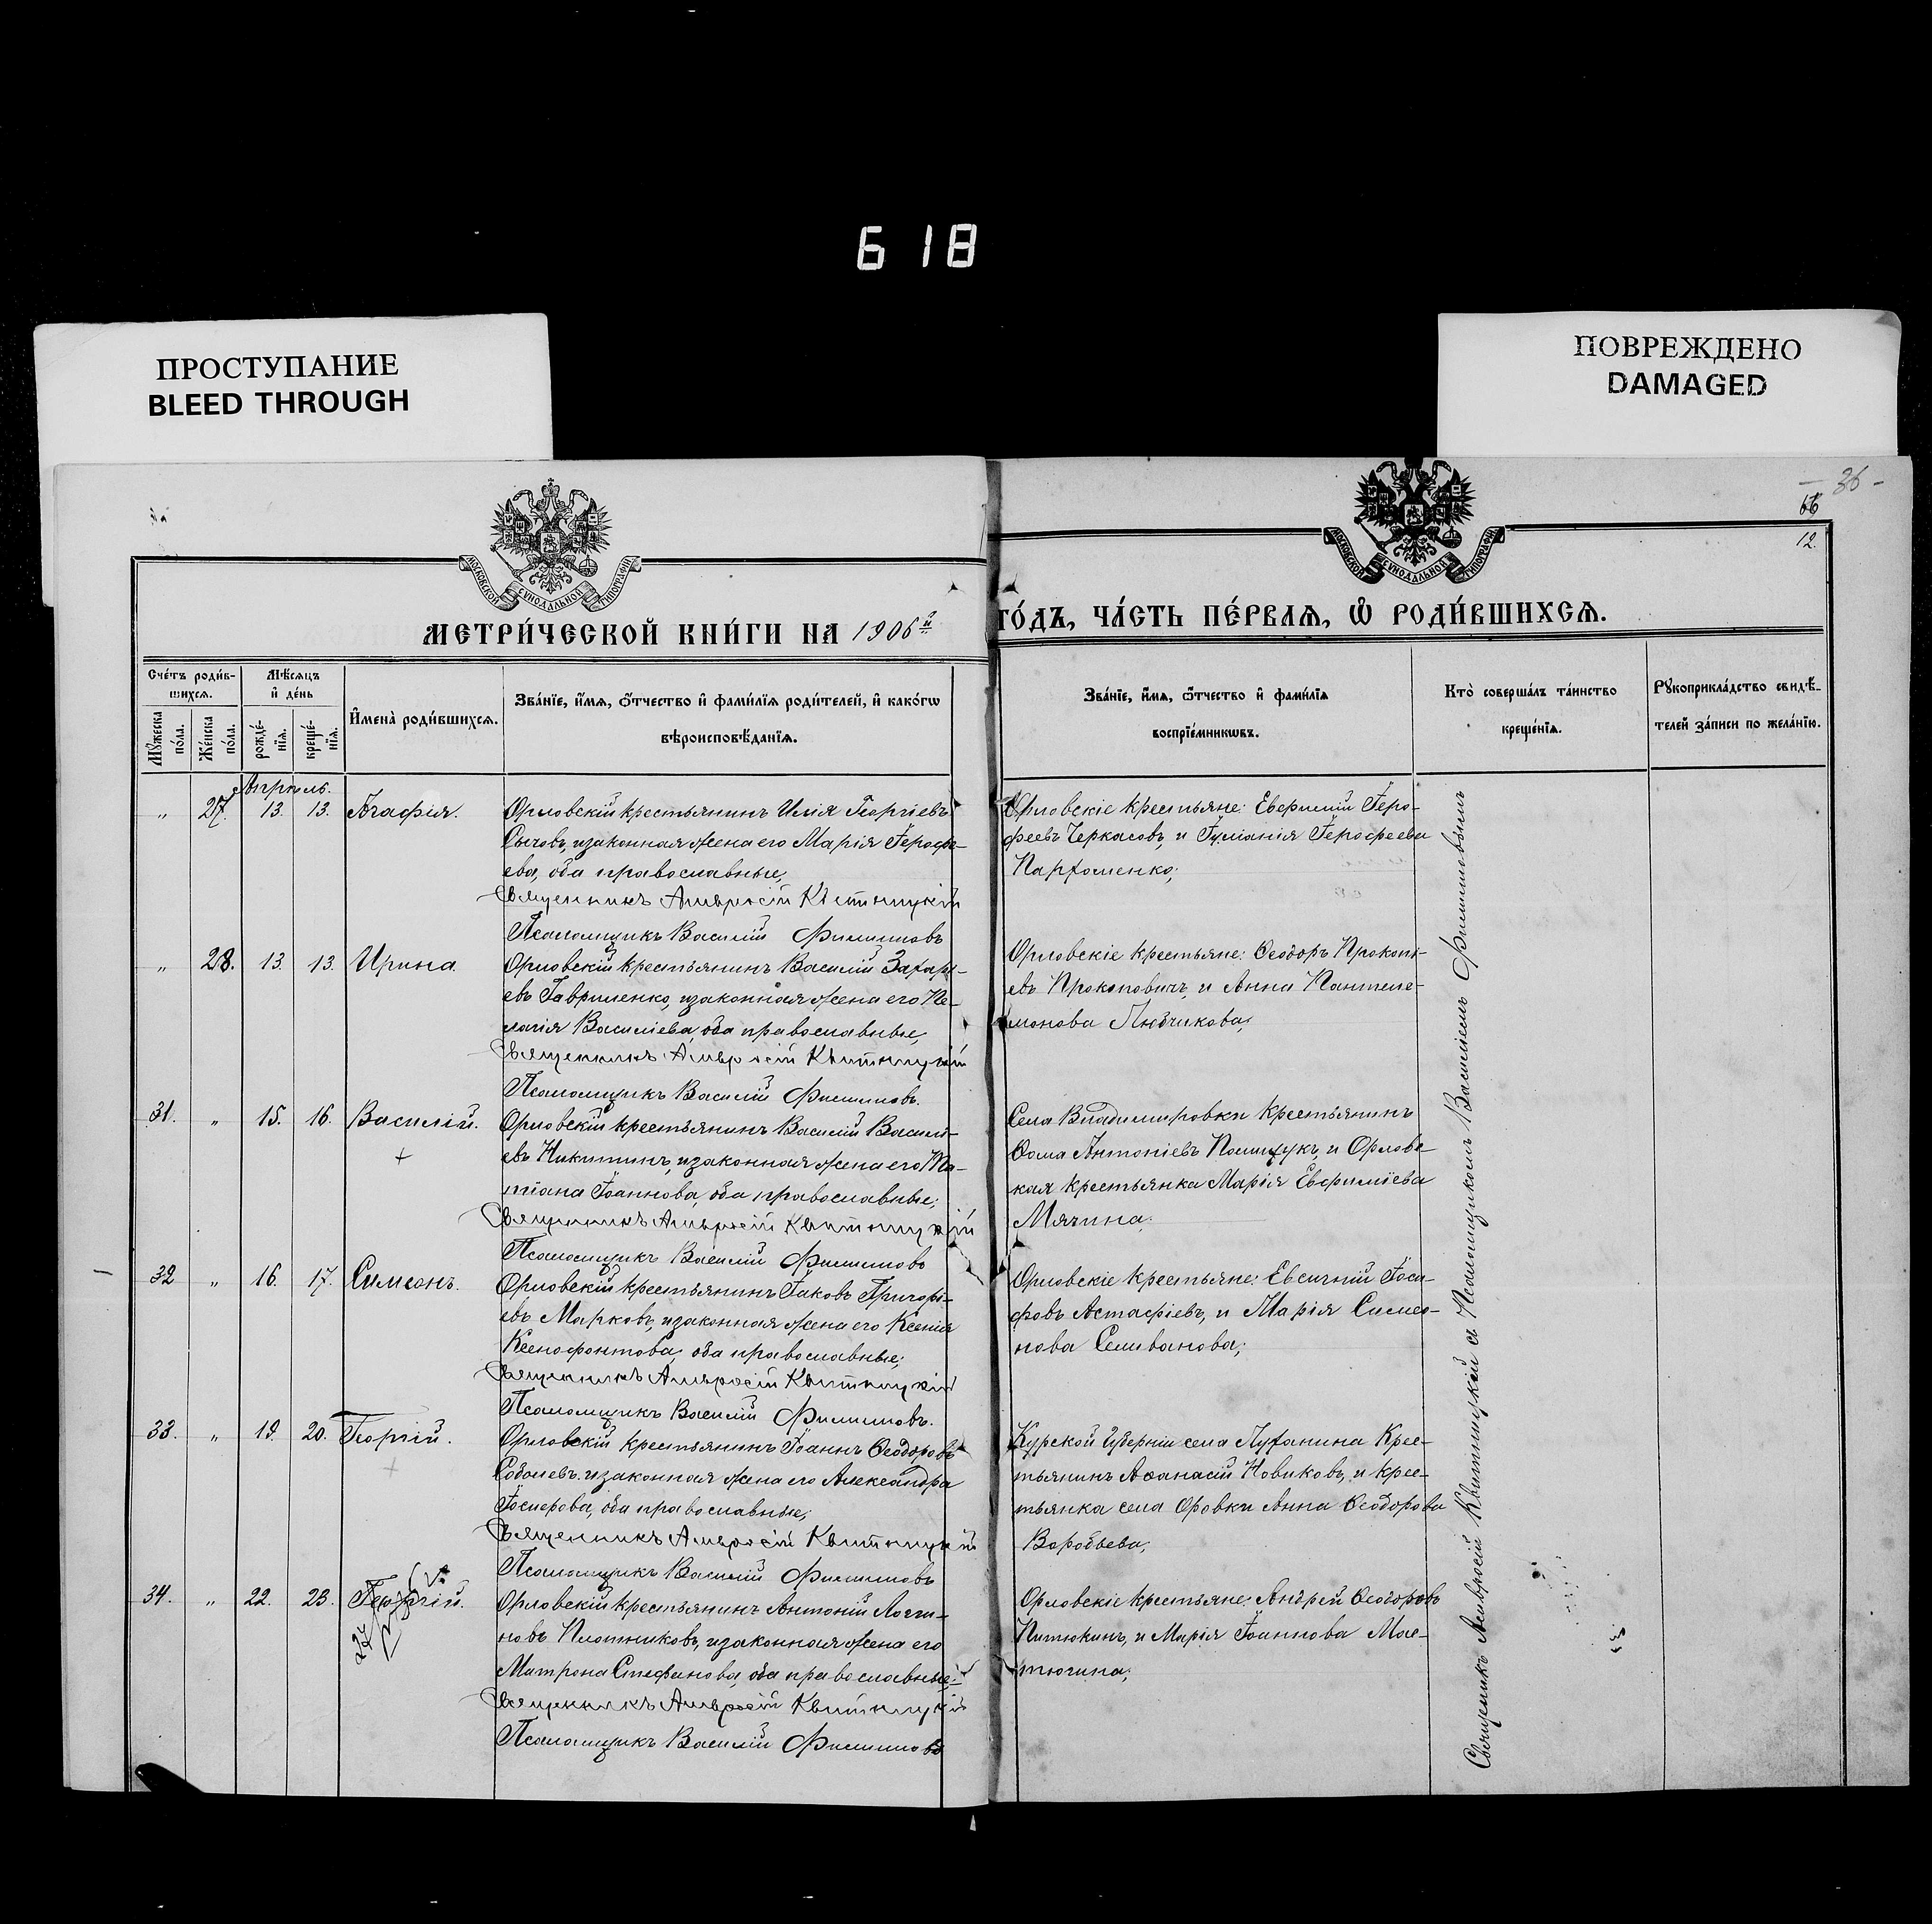 618
ПРОСТУПАНИЕ
BLEED THROUGH
ПОВРЕЖДЕНО
DAMAGED
36
12.
МОСКОВСКОЙ СѴНОДАЛЬНОЙ ТИПОГРАФІИ
МОСКОВСКОЙ СѴНОДАЛЬНОЙ ТИПОГРАФІИ
МЕТРИ́ЧЕСКОЙ КНИ́ГИ НА 1906й
ГО́ДЪ, ЧА́СТЬ ПЕ́РВАѦ, Ѿ РОДИ́ВШИХСѦ.
Сче́тъ роди́в-
шихсѧ.
Мѣ́сѧцъ
и҆ де́нь
Мꙋ́жеска по́ла.
Же́нска по́ла.
рожде́-
нїѧ.
креще́-
нїѧ.
И҆мена̀ роди́вшихсѧ.
Зва́нїе, и҆́мѧ, ѻ҆́тчество и҆ фами́лїѧ роди́телей, и҆ како́гѡ
вѣроисповѣ́данїѧ.
Зва́нїе, и҆́мѧ, ѻ҆́тчество и҆ фами́лїѧ
воспрїе́мникѡвъ.
Кто̀ соверша́лъ та́инство
креще́нїѧ.
Рꙋкоприкла́дство свидѣ́-
телей за́писи по жела́нїю.
Апрѣль.
" 27. 13. 13. Агафія.
Орловскій крестьянинъ Илія Георгіевъ
Сычовъ, и законная жена его Марія Іерофе-
ева, оба православные;
Священникъ Амвросій Квитницкій
Псаломщикъ Василій Филимоновъ
Орловскіе крестьяне: Евфимій Іеро-
феевъ Черкасовъ, и Іуліанія Іерофеева
Пархоменко;
" 28. 13. 13. Ирина.
Орловскій крестьянинъ Василій Захарі-
евъ Гавриленко, и законная жена его Пе-
лагія Василіева, оба православные;
Священникъ Амвросій Квитницкій
Псаломщикъ Василій Филимоновъ.
Орловскіе крестьяне: Ѳеодоръ Прокопі-
евъ Прокоповичъ, и Анна Пантеле-
монова Любчикова;
31. " 15. 16. Василій.
Орловскій крестьянинъ Василій Василі-
евъ Никитинъ, и законная жена его Та-
тіана Іоаннова, оба православные;
Священникъ Амвросій Квитницкій
Псаломщикъ Василій Филимоновъ
Села Владимировки крестьянинъ
Ѳома Антоніевъ Полищукъ, и Орловс-
кая крестьянка Марія Евфиміева
Мячина;
32 " 16. 17. Симеонъ.
Орловскій крестьянинъ Іаковъ Григорі-
евъ Марковъ, и законная жена его Ксенія
Ксенофонтова, оба православные;
Священникъ Амвросій Квитницкій
Псаломщикъ Василій Филимоновъ.
Орловскіе крестьяне: Евсигній Іоси-
фовъ Астафіевъ, и Марія Симео-
нова Селиванова;
33. " 19. 20. Георгій.
Орловскій крестьянинъ Іоаннъ Ѳеодоровъ
Соболевъ, и законная жена его Александра
Іосифова, оба православные;
Священникъ Амвросій Квитницкій
Псаломщикъ Василій Филимоновъ
Курской губерніи села Луханина Крес-
тьянинъ Аѳанасій Новиковъ, и крес-
тьянка села Оровки Анна Ѳеодорова
Воробьева;
34. " 22. 23. Георгій.
Орловскій крестьянинъ Антоній Логги-
новъ Плотниковъ, и законная жена его
Матрона Стефанова, оба православные;
Священникъ Амвросій Квитницкій
Псаломщикъ Василій Филимоновъ
Орловскіе крестьяне: Андрей Ѳеодоровъ
Питюкинъ, и Марія Іоаннова Мас-
тюгина;
Священникъ Амвросій Квитницкій съ Псаломщикомъ Василіемъ Филимоновымъ